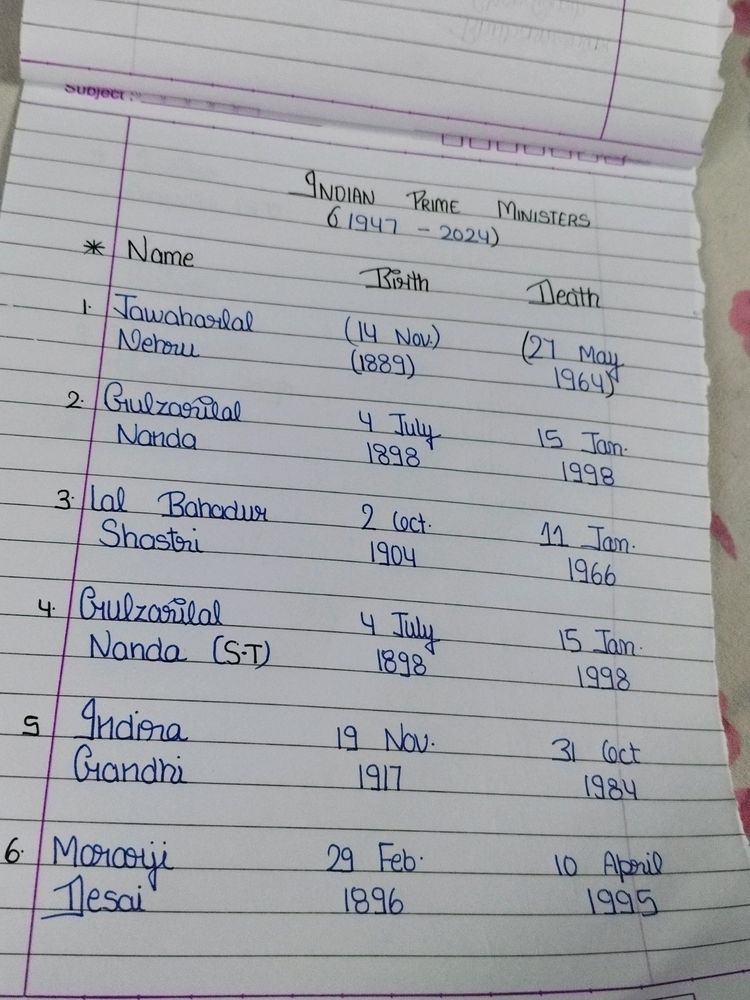 Subject :
INDIAN PRIME MINISTERS
(1947 - 2024)
* Name Birth Death
1. Jawaharlal (14 Nov.) (27 May
Nehru (1889) 1964)
2. Gulzarilal 4 July 15 Jan.
Nanda 1898 1998
3. Lal Bahadur 2 Oct. 11 Jan.
Shastri 1904 1966
4. Gulzarilal 4 July 15 Jan.
Nanda (S.T) 1898 1998
5 Indira 19 Nov. 31 Oct
Gandhi 1917 1984
6. Morarji 29 Feb. 10 April
Desai 1896 1995